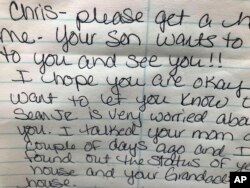 Chris- please get a
me- Your son wants to
to you and see you!!
I hope you are okay
want to let you know
Sean Jr is very worried abo
you. I talked your mom
couple of days ago and I
found out the status of y
house and your Grandad
house.
AP